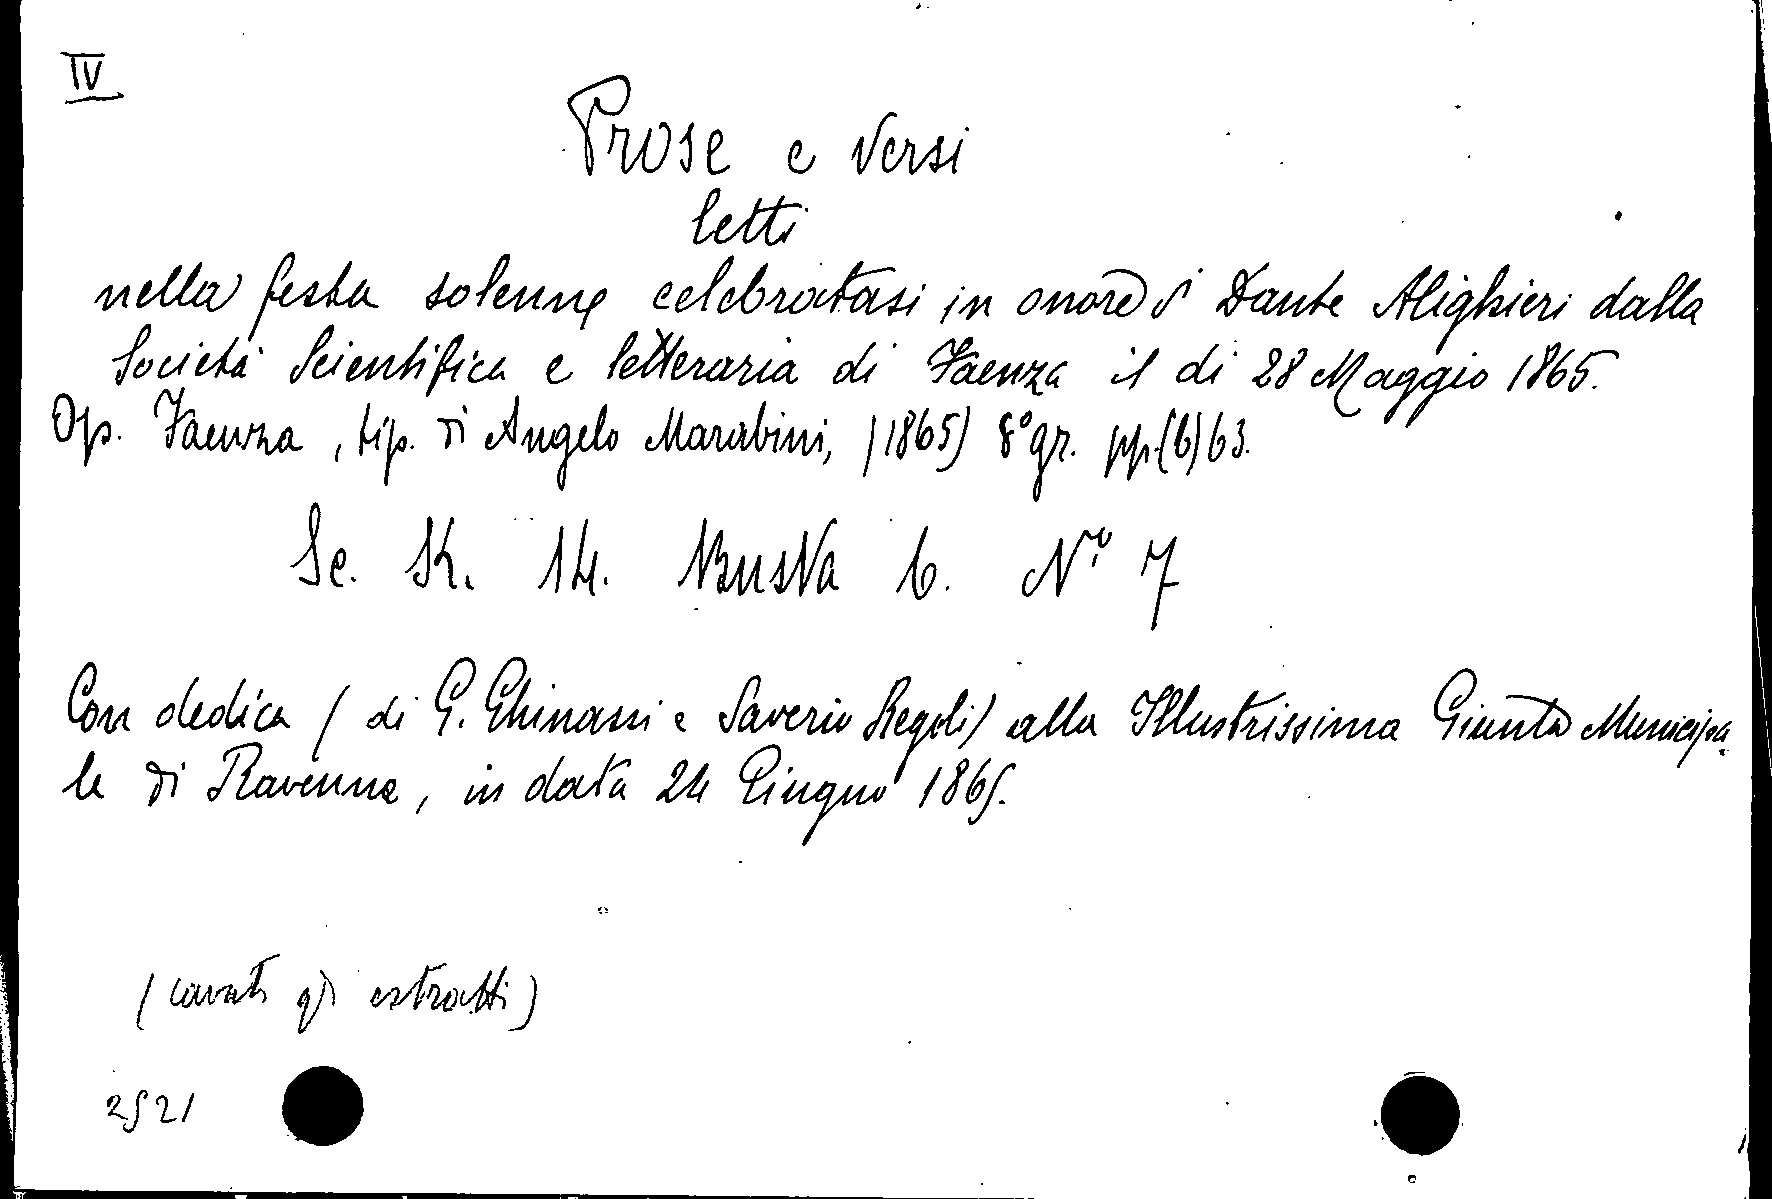 IV
Prose e versi
letti
nella festa solenne celebratasi in onore di Dante Alighieri dalla
Società Scientifica e letteraria di Faenza il di 28 Maggio 1865.
Op. Faenza, tip. di Angelo Marabini, (1865) 8° gr. pp. (6) 63.
Sc. K. 14. Busta 6. N° 7
Con dedica (di G. Ghinassi e Saverio Regoli) alla Illustrissima Giunta Municipa-
le di Ravenna, in data 24 Giugno 1865.
(cavati gli estratti)
2521